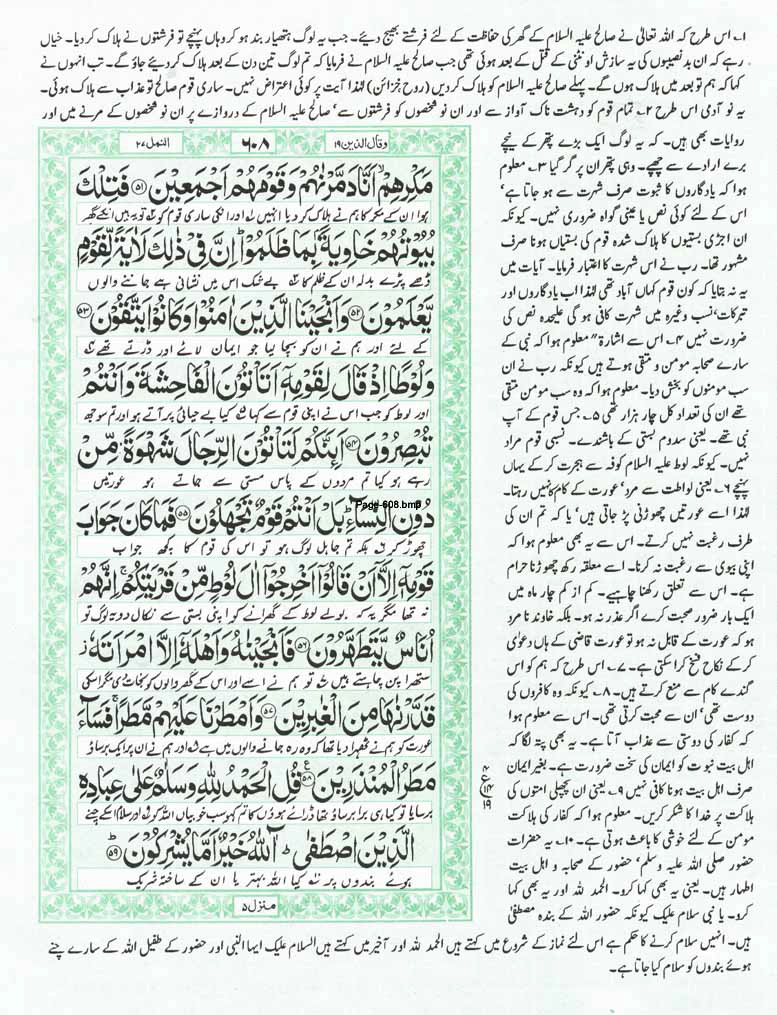 ۱۔ اس طرح کہ اللہ تعالیٰ نے صالح علیہ السلام کے گھر کی حفاظت کے لئے فرشتے بھیج دیئے۔ جب یہ لوگ ہتھیار بند ہو کر وہاں پہنچے تو فرشتوں نے ہلاک کر دیا۔ خیال
رہے کہ ان بد نصیبوں کی یہ سازش اونٹنی کے قتل کے بعد ہوئی تھی جب صالح علیہ السلام نے فرمایا کہ تم لوگ تین دن کے بعد ہلاک کر دیئے جاؤ گے۔ تب انہوں نے
کہا کہ ہم تو بعد میں ہلاک ہوں گے۔ پہلے صالح علیہ السلام کو ہلاک کر دیں (روح خزائن) لہٰذا آیت پر کوئی اعتراض نہیں۔ ساری قوم صالح تو عذاب سے ہلاک ہوئی۔
یہ نو آدمی اس طرح ۲۔ تمام قوم کو دہشت ناک آواز سے اور ان نو شخصوں کو فرشتوں سے‘ صالح علیہ السلام کے دروازے پر ان نو شخصوں کے مرنے میں اور
وقال الذین ۱۹
۶۰۸
النمل ۲۷
مَكْرِهِمْ اَنَّا دَمَّرْنٰهُمْ وَقَوْمَهُمْ اَجْمَعِيْنَ ﴿۵۱﴾ فَتِلْكَ
ہوا ان کے مکر کا ہم نے ہلاک کر دیا انہیں اور انکی ساری قوم کو تو یہ ہیں انکے گھر
بُيُوْتُهُمْ خَاوِيَةًۢ بِمَا ظَلَمُوْا ؕ اِنَّ فِيْ ذٰلِكَ لَاٰيَةً لِّقَوْمٍ
ڈھے پڑے بدلہ ان کے ظلم کا بے شک اس میں نشانی ہے جاننے والوں
يَّعْلَمُوْنَ ﴿۵۲﴾ وَاَنْجَيْنَا الَّذِيْنَ اٰمَنُوْا وَكَانُوْا يَتَّقُوْنَ ﴿۵۳﴾
کے لئے اور ہم نے ان کو بچا لیا جو ایمان لائے اور ڈرتے تھے
وَلُوْطًا اِذْ قَالَ لِقَوْمِهٖۤ اَتَاْتُوْنَ الْفَاحِشَةَ وَاَنْتُمْ
اور لوط کو جب اس نے اپنی قوم سے کہا کیا بے حیائی پر آتے ہو اور تم سوجھ
تُبْصِرُوْنَ ﴿۵۴﴾ اَئِنَّكُمْ لَتَاْتُوْنَ الرِّجَالَ شَهْوَةً مِّنْ
رہے ہو کیا تم مردوں کے پاس مستی سے جاتے ہو عورتیں
دُوْنِ النِّسَآءِ ؕ بَلْ اَنْتُمْ قَوْمٌ تَجْهَلُوْنَ ﴿۵۵﴾ فَمَا كَانَ جَوَابَ
Page-608.bmp
چھوڑ کر بلکہ تم جاہل لوگ ہو تو اس کی قوم کا کچھ جواب
قَوْمِهٖۤ اِلَّاۤ اَنْ قَالُوْۤا اَخْرِجُوْۤا اٰلَ لُوْطٍ مِّنْ قَرْيَتِكُمْ ۚ اِنَّهُمْ
نہ تھا مگر یہ کہ بولے لوط کے گھرانے کو اپنی بستی سے نکال دو یہ لوگ تو
اُنَاسٌ يَّتَطَهَّرُوْنَ ﴿۵۶﴾ فَاَنْجَيْنٰهُ وَاَهْلَهٗۤ اِلَّا امْرَاَتَهٗ ز
ستھراپن چاہتے ہیں تو ہم نے اسے اور اس کے گھر والوں کو نجات دی مگر اسکی
قَدَّرْنٰهَا مِنَ الْغٰبِرِيْنَ ﴿۵۷﴾ وَاَمْطَرْنَا عَلَيْهِمْ مَّطَرًا ۚ فَسَآءَ
عورت کو ہم نے ٹھہرا دیا تھا کہ وہ رہ جانے والوں میں ہے اور ہم نے ان پر ایک برساؤ
مَطَرُ الْمُنْذَرِيْنَ ﴿۵۸﴾ قُلِ الْحَمْدُ لِلّٰهِ وَسَلٰمٌ عَلٰى عِبَادِهِ
برسایا تو کیا ہی برا برساؤ تھا ڈرائے ہوؤں کا تم کہو سب خوبیاں اللہ کو اور سلام اسکے چنے
الَّذِيْنَ اصْطَفٰى ؕ آٰللّٰهُ خَيْرٌ اَمَّا يُشْرِكُوْنَ ﴿۵۹﴾
ہوئے بندوں پر کیا اللہ بہتر یا ان کے ساختہ شریک
منزل ۵
روایات بھی ہیں۔ کہ یہ لوگ ایک بڑے پتھر کے نیچے
برے ارادے سے چھپے۔ وہی پتھر ان پر گر گیا ۳۔ معلوم
ہوا کہ یادگاروں کا ثبوت صرف شہرت سے ہو جاتا ہے‘
اس کے لئے کوئی نص یا عینی گواہ ضروری نہیں۔ کیونکہ
ان اجڑی بستیوں کا ہلاک شدہ قوم کی بستیاں ہونا صرف
مشہور تھا۔ رب نے اس شہرت کا اعتبار فرمایا۔ آیات میں
یہ نہ بتایا کہ کون قوم کہاں آباد تھی لہٰذا اب یادگاروں اور
تبرکات‘ نسب وغیرہ میں شہرت کافی ہوگی علیحدہ نص کی
ضرورت نہیں ۴۔ اس سے اشارۃً معلوم ہوا کہ نبی کے
سارے صحابہ مومن و متقی ہوتے ہیں کیونکہ رب نے ان
سب مومنوں کو بخش دیا۔ معلوم ہوا کہ وہ سب مومن متقی
تھے ان کی تعداد کل چار ہزار تھی ۵۔ جس قوم کے آپ
نبی تھے۔ یعنی سدوم بستی کے باشندے۔ نسبی قوم مراد
نہیں۔ کیونکہ لوط علیہ السلام کوفہ سے ہجرت کر کے یہاں
پہنچے ۶۔ یعنی لواطت سے مرد‘ عورت کے کام کا نہیں رہتا۔
لہٰذا اسے عورتیں چھوڑنی پڑ جاتی ہیں‘ یا کہ تم ان کی
طرف رغبت نہیں کرتے۔ اس سے یہ بھی معلوم ہوا کہ
اپنی بیوی سے رغبت نہ کرنا۔ اسے معلقہ رکھ چھوڑنا حرام
ہے۔ اس سے تعلق رکھنا چاہیے۔ کم از کم چار ماہ میں
ایک بار ضرور صحبت کرے اگر عذر نہ ہو۔ بلکہ خاوند نامرد
ہو کہ عورت کے قابل نہ ہو تو عورت قاضی کے ہاں دعویٰ
کر کے نکاح فسخ کرا سکتی ہے۔ ۷۔ اس طرح کہ ہم کو اس
گندے کام سے منع کرتے ہیں۔ ۸۔ کیونکہ وہ کافروں کی
دوست تھی‘ ان سے محبت کرتی تھی۔ اس سے معلوم ہوا
کہ کفار کی دوستی سے عذاب آتا ہے۔ یہ بھی پتہ لگا کہ
اہل بیت نبوت کو ایمان کی سخت ضرورت ہے۔ بغیر ایمان
صرف اہل بیت ہونا کافی نہیں ۹۔ یعنی ان پچھلی امتوں کی
ہلاکت پر خدا کا شکر کریں۔ معلوم ہوا کہ کفار کی ہلاکت
مومن کے لئے خوشی کا باعث ہوتی ہے۔ ۱۰۔ یہ حضرات
حضور صلی اللہ علیہ وسلم‘ حضور کے صحابہ و اہل بیت
اطہار ہیں۔ یعنی یہ بھی کہا کرو۔ الحمد للہ اور یہ بھی کہا
کرو۔ یا نبی سلام علیک کیونکہ حضور اللہ کے بندہ مصطفیٰ
ہیں۔ انہیں سلام کرنے کا حکم ہے اس لئے نماز کے شروع میں کہتے ہیں الحمد للہ اور آخیر میں کہتے ہیں السلام علیک ایہا النبی اور حضور کے طفیل اللہ کے سارے چنے
ہوئے بندوں کو سلام کیا جاتا ہے۔